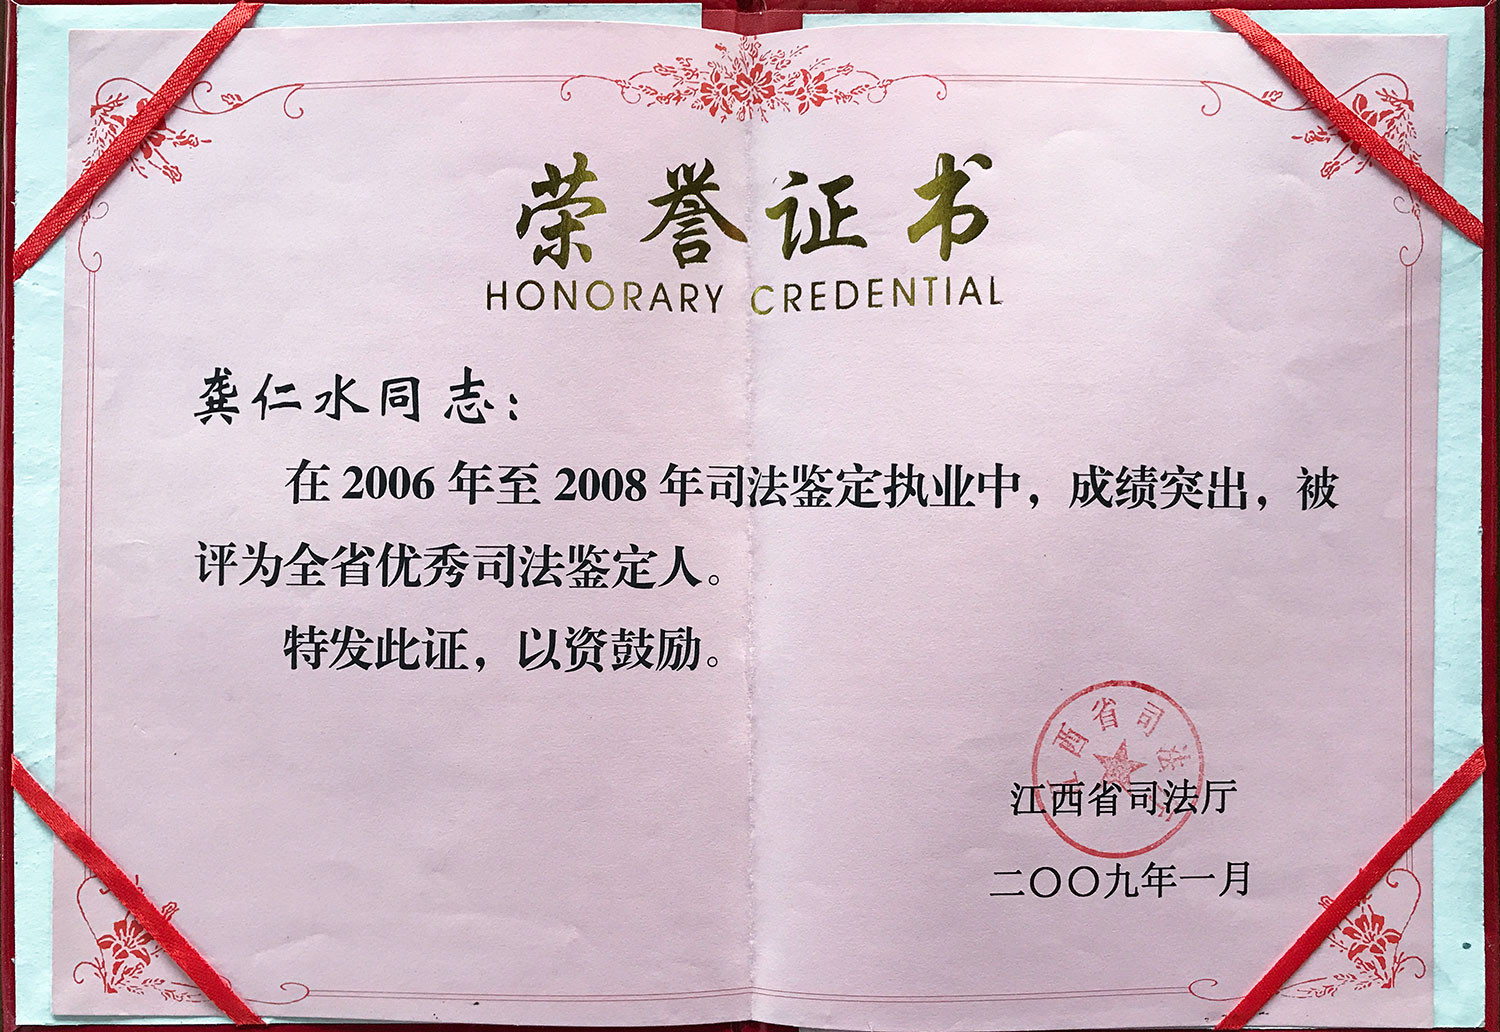 荣誉证书
HONORARY CREDENTIAL
龚仁水同志：
在 2006 年至 2008 年司法鉴定执业中，成绩突出，被
评为全省优秀司法鉴定人。
特发此证，以资鼓励。
江西省司法厅
江西省司法厅
二〇〇九年一月